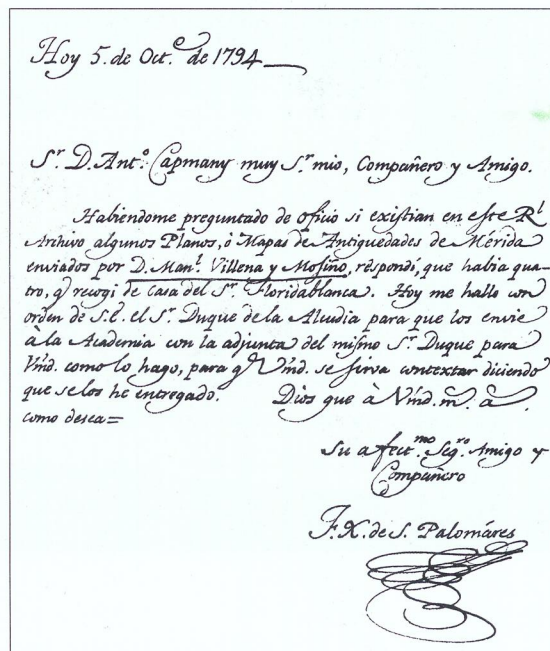 Hoy 5. de Oct.e de 1794
Sr. D. Anto. Capmany muy Sr. mio, Compañero y Amigo.
Habiendome preguntado de oficio si existian en este Rl.
Archivo algunos Planos, ò Mapas de Antiguedades de Mérida
enviados por D. Manl. Villena y Mosino, respondí, que habia qua-
tro, q recogi de Casa del Sr. Floridablanca. Hoy me hallo con
orden de S.E. el Sr. Duque de la Alcudia para que los envie
à la Academia con la adjunta del mismo Sr. Duque para
Vmd. como lo hago, para q Vmd. se sirva contextar diciendo
que se los he entregado. Dios gue à Vmd. m. a.
como desea=
Su afect.mo Seg.ro Amigo y
Compañero
F. X. de S. Palomáres